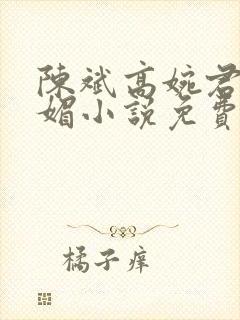 陳斌高婉君
媚小說免費
橘子痒